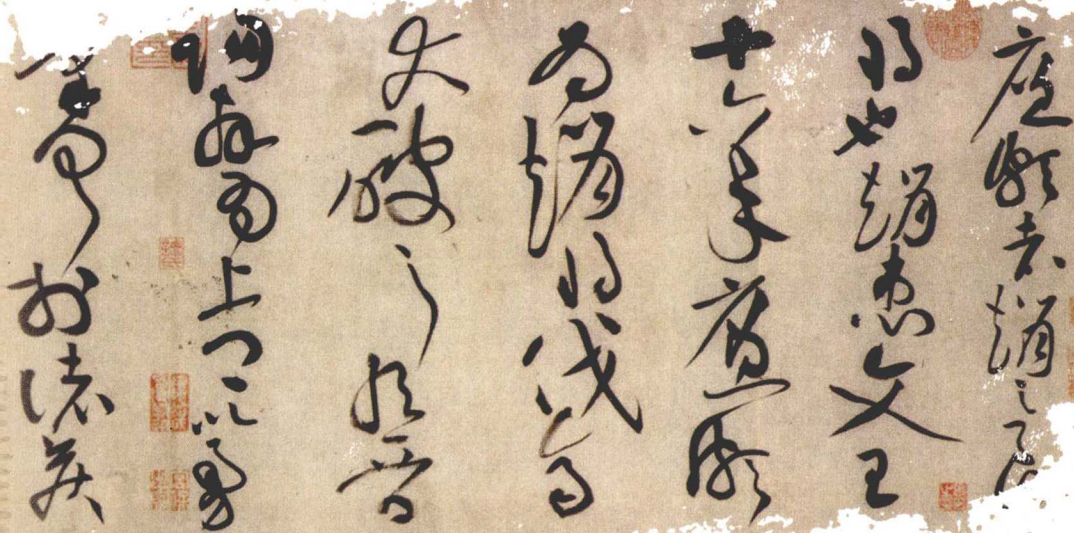 廉頗者趙之良
將也趙惠文王
十六年廉頗
為趙將伐齊
大破之取晉
陽拜為上卿以勇
氣聞於諸侯